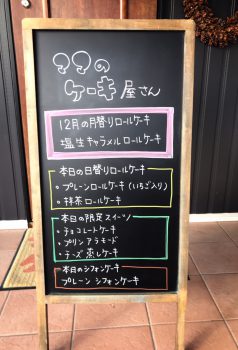 ??の
ケーキ屋さん
12月の月替りロールケーキ
塩生キャラメルロールケーキ
本日の日替りロールケーキ
・プレーンロールケーキ(いちご入り)
・抹茶ロールケーキ
本日の限定スイーツ
・チョコレートケーキ
・プリンアラモード
・チーズ蒸しケーキ
本日のシフォンケーキ
プレーンシフォンケーキ